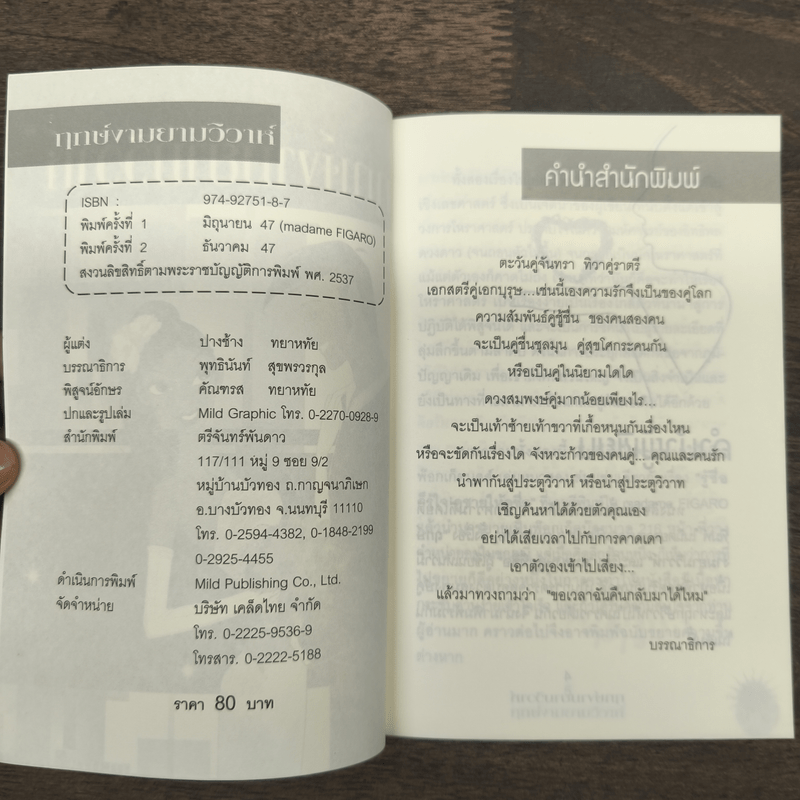 ฤกษ์งามยามวิวาห์
ISBN : 974-92751-8-7
พิมพ์ครั้งที่ 1 มิถุนายน 47 (madame FIGARO)
พิมพ์ครั้งที่ 2 ธันวาคม 47
สงวนลิขสิทธิ์ตามพระราชบัญญัติการพิมพ์ พศ. 2537
ผู้แต่ง ปางช้าง ทยาหทัย
บรรณาธิการ พุทธินันท์ สุขพรวรกุล
พิสูจน์อักษร คัณฑรส ทยาหทัย
ปกและรูปเล่ม Mild Graphic โทร. 0-2270-0928-9
สำนักพิมพ์ ตรีจันทร์พันดาว
117/111 หมู่ 9 ซอย 9/2
หมู่บ้านบัวทอง ถ.กาญจนาภิเษก
อ.บางบัวทอง จ.นนทบุรี 11110
โทร. 0-2594-4382, 0-1848-2199
0-2925-4455
ดำเนินการพิมพ์ Mild Publishing Co., Ltd.
จัดจำหน่าย บริษัท เคล็ดไทย จำกัด
โทร. 0-2225-9536-9
โทรสาร. 0-2222-5188
ราคา 80 บาท
คำนำสำนักพิมพ์
ตะวันคู่จันทรา ทิวาคู่ราตรี
เอกสตรีคู่เอกบุรุษ...เช่นนี้เองความรักจึงเป็นของคู่โลก
ความสัมพันธ์คู่ชู้ชื่น ของคนสองคน
จะเป็นคู่ชื่นชุลมุน คู่สุขโศกระคนกัน
หรือเป็นคู่ในนิยามใดใด
ดวงสมพงษ์คู่มากน้อยเพียงไร...
จะเป็นเท้าซ้ายเท้าขวาที่เกื้อหนุนกันเรื่องไหน
หรือจะขัดกันเรื่องใด จังหวะก้าวของคนคู่... คุณและคนรัก
นำพากันสู่ประตูวิวาห์ หรือนำสู่ประตูวิวาท
เชิญค้นหาได้ด้วยตัวคุณเอง
อย่าได้เสียเวลาไปกับการคาดเดา
เอาตัวเองเข้าไปเสี่ยง...
แล้วมาทวงถามว่า "ขอเวลาฉันคืนกลับมาได้ไหม"
บรรณาธิการ